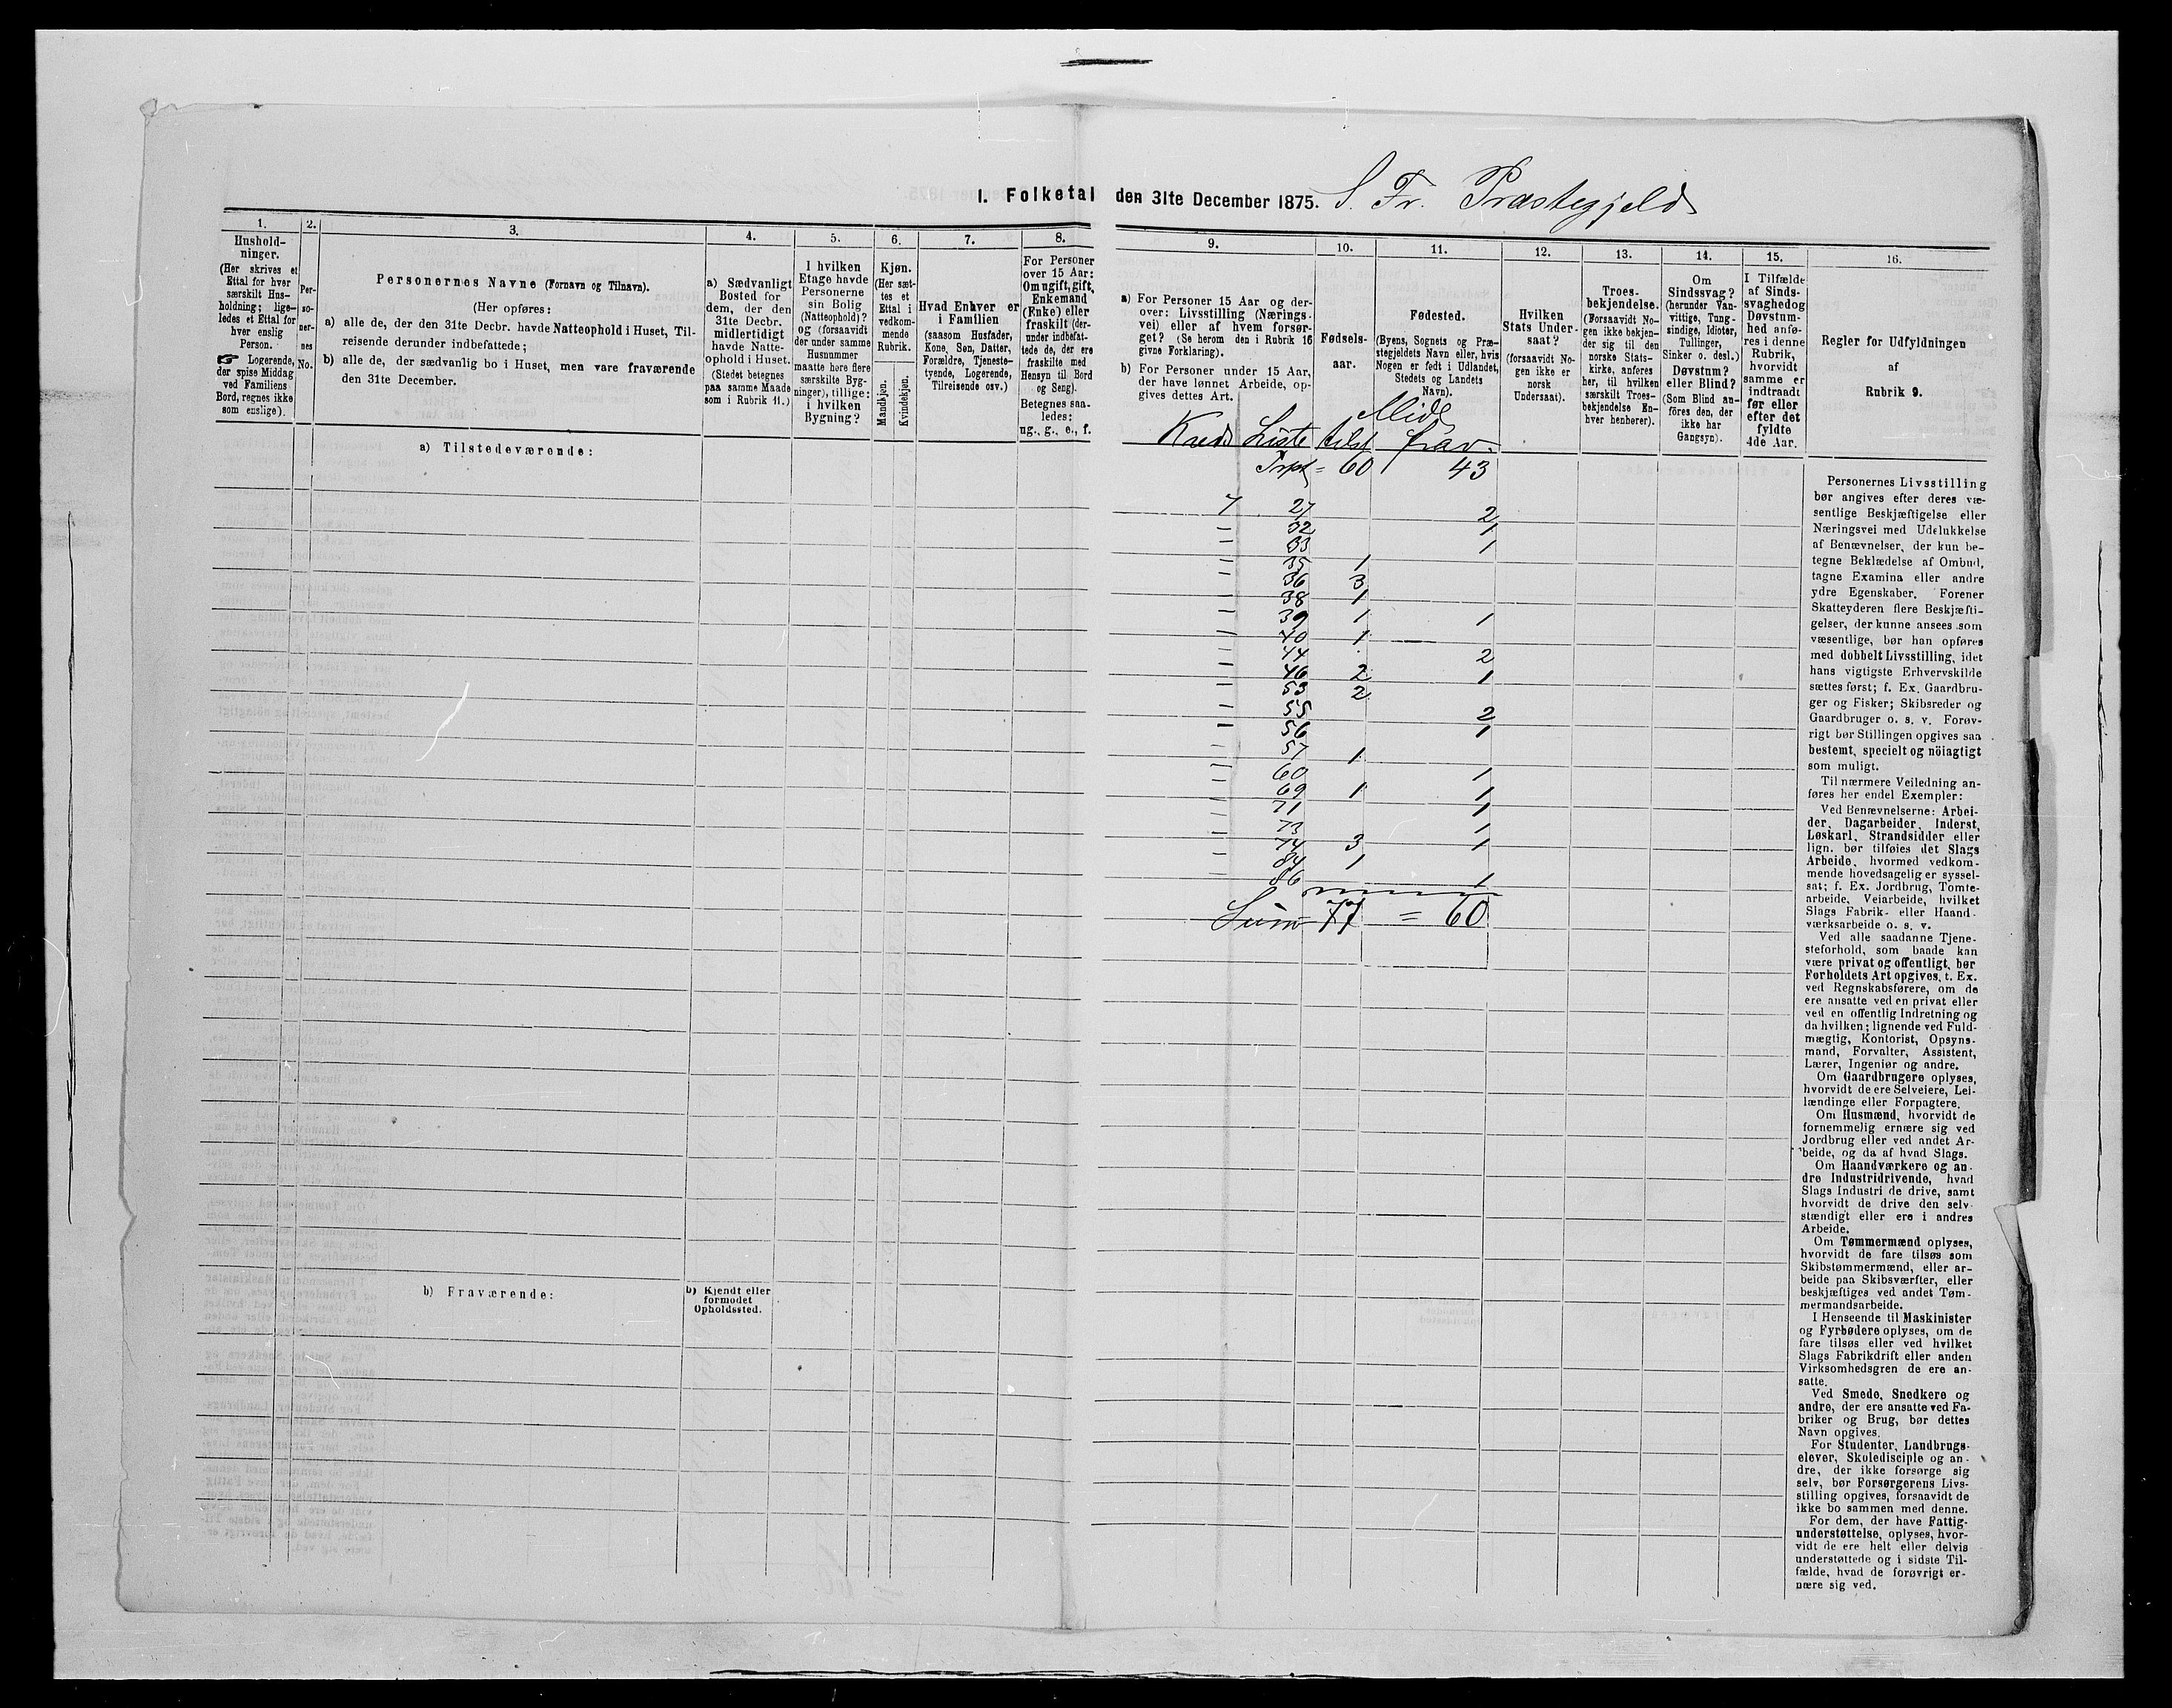 I. Folketal den 31te December 1875. S. Fr. Præstegjeld
1.
Hushold-
ninger.
(Her skrives et
Ettal for hver
særskilt Hus-
holdning; lige-
ledes et Ettal for
hver enslig
Person.
☞ Logerende,
der spise Middag
ved Familiens
Bord, regnes ikke
som enslige).
2.
Per-
so-
ner-
nes
No.
3.
Personernes Navne (Fornavn og Tilnavn).
(Her opføres:
a) alle de, der den 31te Decbr. havde Natteophold i Huset, Til-
reisende derunder indbefattede;
b) alle de, der sædvanlig bo i Huset, men vare fraværende
den 31te December.
4.
a) Sædvanligt
Bosted for
dem, der den
31te Decbr.
midlertidigt
havde Natte-
ophold i Huset.
(Stedet betegnes
paa samme Maade
som i Rubrik 11.)
5.
I hvilken
Etage havde
Personerne
sin Bolig
(Natteophold)?
og (forsaavidt
der under samme
Husnummer
maatte høre flere
særskilte Byg-
ninger), tillige:
i hvilken
Bygning?
6.
Kjøn.
(Her sæt-
tes et
Ettal i
vedkom-
mende
Rubrik.
Mandkjøn.
Kvindekjøn.
7.
Hvad Enhver er
i Familien
(saasom Husfader,
Kone, Søn, Datter,
Forældre, Tjeneste-
tyende, Logerende,
Tilreisende osv.)
8.
For Personer
over 15 Aar:
Om ugift, gift,
Enkemand
(Enke) eller
fraskilt (der-
under indbefat-
tede de, der ere
fraskilte med
Hensyn til Bord
og Seng).
Betegnes saa-
ledes:
ug., g., e., f.
9.
a) For Personer 15 Aar og der-
over: Livsstilling (Nærings-
vei) eller af hvem forsør-
get? (Se herom den i Rubrik 16
givne Forklaring).
b) For Personer under 15 Aar,
der have lønnet Arbeide, op-
gives dettes Art.
10.
Fødsels-
aar.
11.
Fødested.
(Byens, Sognets og Præ-
stegjeldets Navn eller, hvis
Nogen er født i Udlandet,
Stedets og Landets
Navn).
12.
Hvilken
Stats Under-
saat?
(forsaavidt No-
gen ikke er
norsk
Undersaat).
13.
Troes-
bekjendelse.
(Forsaavidt No-
gen ikke bekjen-
der sig til den
norske Stats-
kirke, anføres
her, til hvilken
særskilt Troes-
bekjendelse En-
hver henhører).
14.
Om
Sindssvag?
(herunder Van-
vittige, Tung-
sindige, Idioter,
Tullinger,
Sinker o. desl.)
Døvstum?
eller Blind?
(Som Blind an-
føres den, der
ikke har
Gangsyn).
15.
I Tilfælde
af Sinds-
svaghed og
Døvstum-
hed anfø-
res i denne
Rubrik,
hvorvidt
samme er
indtraadt
før eller
efter det
fyldte
4de Aar.
16.
Regler for Udfyldningen
af
Rubrik 9.
a) Tilstedeværende:
Mid
Kreds Liste tilst frav.
Trpt = 60 43
7 27 2
" 32 1
" 33 1
" 35 1
" 36 3
" 38 1
" 39 1 1
" 40 1
" 44 2
" 46 2 1
" 53 2
" 55 2
" 56 1
" 57 1
" 60 1
" 69 1 1
" 71 1
" 73 1
" 74 3 1
" 84 1
" 86 1
Sum = 77 = 60
b) Fraværende:
b) Kjendt eller
formodet
Opholdssted.
Personernes Livsstilling
bør angives efter deres væ-
sentlige Beskjæftigelse eller
Næringsvei med Udelukkelse
af Benævnelser, der kun be-
tegne Beklædelse af Ombud,
tagne Examina eller andre
ydre Egenskaber. Forener
Skatteyderen flere Beskjæfti-
gelser, der kunne ansees som
væsentlige, bør han opføres
med dobbelt Livsstilling, idet
hans vigtigste Erhvervskilde
sættes først; f. Ex. Gaardbru-
ger og Fisker; Skibsreder og
Gaardbruger o. s. v. Forøv-
rigt bør Stillingen opgives saa
bestemt, specielt og nöiagtigt
som muligt.
Til nærmere Veiledning an-
føres her endel Exempler:
Ved Benævnelserne: Arbei-
der, Dagarbeider, Inderst,
Løskarl, Strandsidder eller
lign. bør tilføies det Slags
Arbeide, hvormed vedkom-
mende hovedsagelig er syssel-
sat; f. Ex. Jordbrug, Tomte-
arbeide, Veiarbeide, hvilket
Slags Fabrik- eller Haand-
værksarbeide o. s. v.
Ved alle saadanne Tjene-
steforhold, som baade kan
være privat og offentligt, bør
Forholdets Art opgives, t. Ex.
ved Regnskabsførere, om de
ere ansatte ved en privat eller
ved en offentlig Indretning og
da hvilken; lignende ved Fuld-
mægtig, Kontorist, Opsyns-
mand, Forvalter, Assistent,
Lærer, Ingeniør og andre.
Om Gaardbrugere oplyses,
hvorvidt de ere Selveiere, Lei-
lændinge eller Forpagtere.
Om Husmænd, hvorvidt de
fornemmelig ernære sig ved
Jordbrug eller ved andet Ar-
beide, og da af hvad Slags.
Om Haandværkere og an-
dre Industridrivende, hvad
Slags Industri de drive, samt
hvorvidt de drive den selv-
stændigt eller ere i andres
Arbeide.
Om Tømmermænd oplyses,
hvorvidt de fare tilsøs som
Skibstømmermænd, eller ar-
beide paa Skibsværfter, eller
beskjæftiges ved andet Tøm-
mermandsarbeide.
I Henseende til Maskinister
og Fyrbødere oplyses, om de
fare tilsøs eller ved hvilket
Slags Fabrikdrift eller anden
Virksomhedsgren de ere an-
satte.
Ved Smede, Snedkere og
andre, der ere ansatte ved Fa-
briker og Brug, bør dettes
Navn opgives.
For Studenter, Landbrugs-
elever, Skoledisciple og an-
dre, der ikke forsørge sig
selv, bør Forsørgerens Livs-
stilling opgives, forsaavidt de
ikke bo sammen med denne.
For dem, der have Fattig-
understøttelse, oplyses, hvor-
vidt de ere helt eller delvis
understøttede og i sidste Til-
fælde, hvad de forøvrigt er-
nære sig ved.